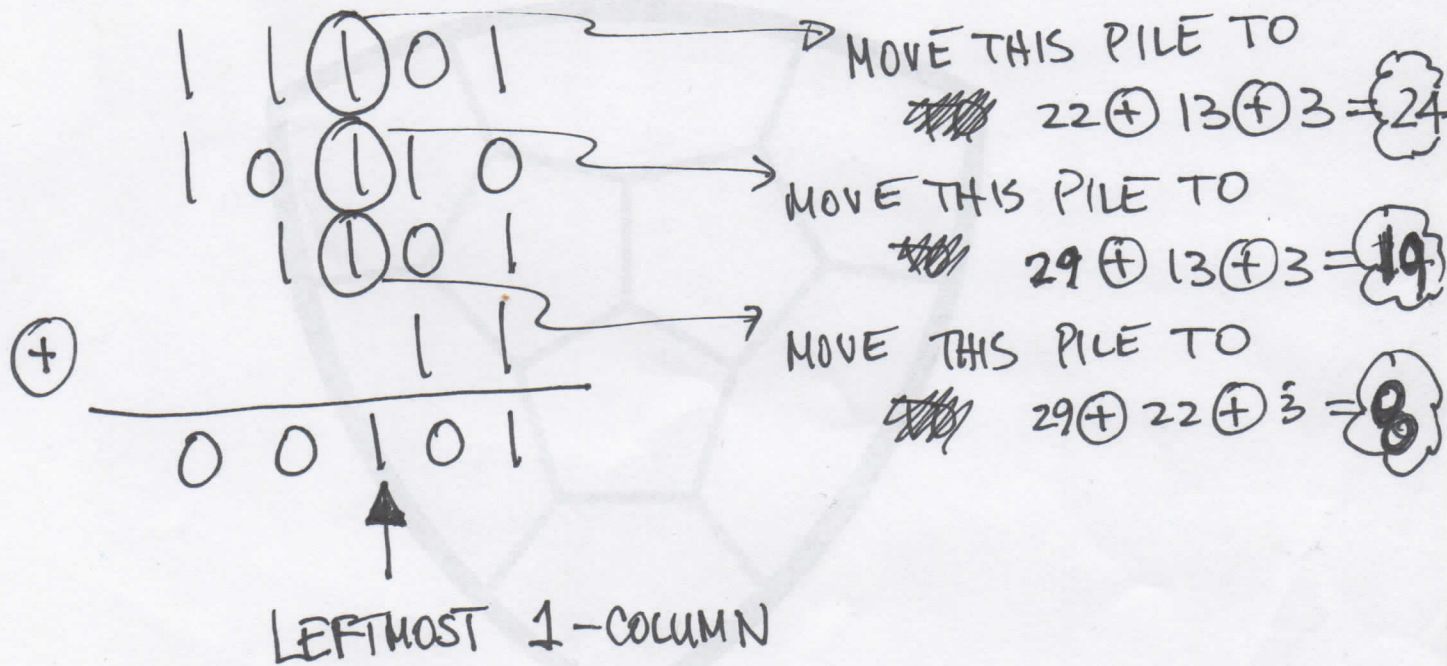 1 1 1 0 1
1 0 1 1 0
1 1 0 1
⊕ 1 1
0 0 1 0 1
LEFTMOST 1-COLUMN
MOVE THIS PILE TO
22 ⊕ 13 ⊕ 3 = 24
MOVE THIS PILE TO
29 ⊕ 13 ⊕ 3 = 19
MOVE THIS PILE TO
29 ⊕ 22 ⊕ 3 = 8